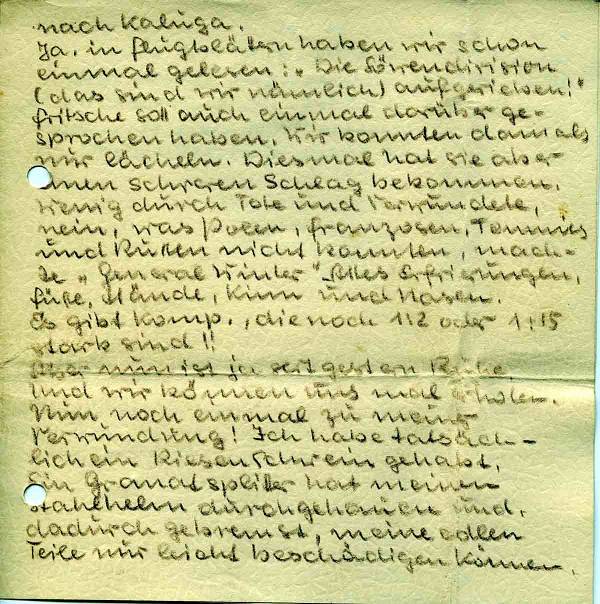 nach Kaluga.
Ja, in Flugblättern haben wir schon
einmal gelesen: „Die Löwendivision
(das sind wir nämlich) aufgerieben!"
Fritsche soll auch einmal darüber ge-
sprochen haben. Wir konnten damals
nur lächeln. Diesmal hat sie aber
einen schweren Schlag bekommen.
Wenig durch Tote und Verwundete,
nein, was Polen, Franzosen, Tommies
und Rußen nicht konnten, mach-
te „General Winter". Alles Erfrierungen,
Füße, Hände, Kinn und Nasen.
Es gibt Komp., die noch 1:12 oder 1:15
stark sind!!
Aber nun ist ja seit gestern Ruhe,
und wir können uns mal erholen.
Nun noch einmal zu meiner
Verwundung! Ich habe tatsäch-
lich ein Riesenschwein gehabt.
Ein Granatsplitter hat meinen
Stahlhelm durchgehauen und,
dadurch gebremst, meine edlen
Teile nur leicht beschädigen können.